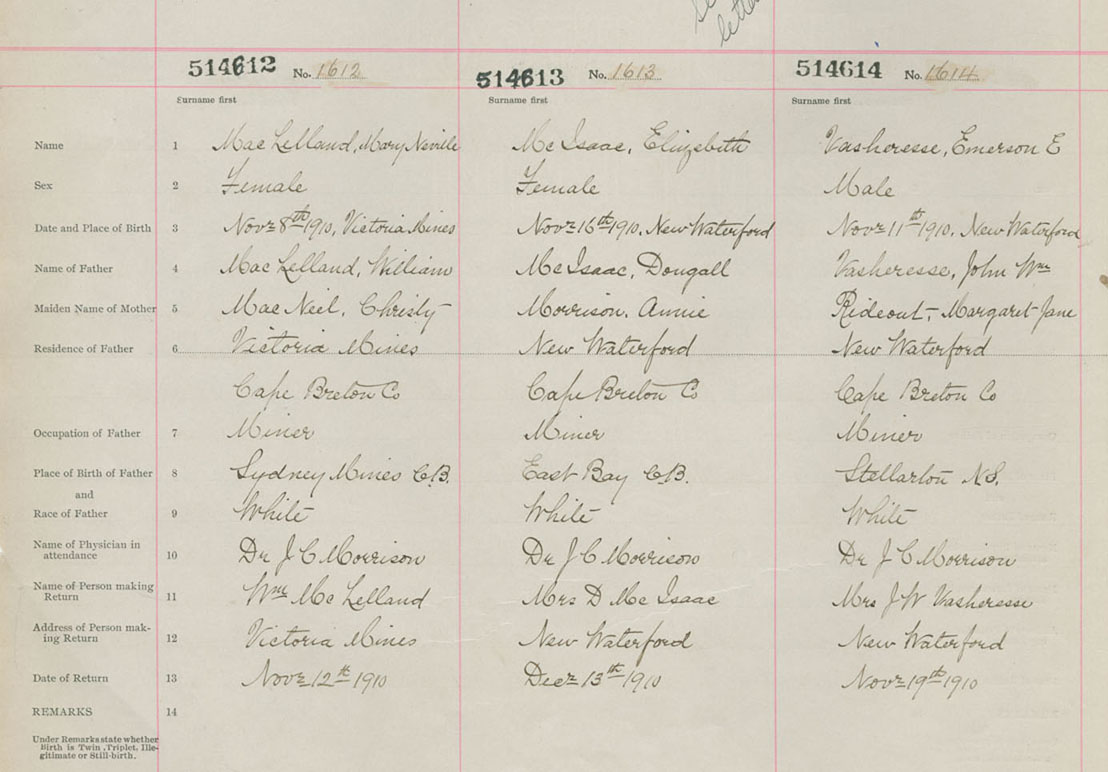 letter
514612 No. 1612 514613 No. 1613 514614 No. 1614
Surname first Surname first Surname first
Name 1 Mac Lelland, Mary Neville Mc Isaac, Elizabeth Vasheresse, Emerson E
Sex 2 Female Female Male
Date and Place of Birth 3 Novr 8th 1910, Victoria Mines Novr 16th 1910. New Waterford Novr 11th 1910. New Waterford
Name of Father 4 Mac Lelland, William Mc Isaac, Dougall Vasheresse, John Wm
Maiden Name of Mother 5 Mac Neil, Christy Morrison. Annie Rideout, Margaret Jane
Residence of Father 6 Victoria Mines New Waterford New Waterford
Cape Breton Co Cape Breton Co Cape Breton Co
Occupation of Father 7 Miner Miner Miner
Place of Birth of Father 8 Sydney Mines C.B. East Bay C.B. Stellarton N.S.
and
Race of Father 9 White White White
Name of Physician in
attendance 10 Dr J C Morrison Dr J C Morrison Dr J C Morrison
Name of Person making
Return 11 Wm Mc Lelland Mrs D Mc Isaac Mrs J W Vasheresse
Address of Person mak-
ing Return 12 Victoria Mines New Waterford New Waterford
Date of Return 13 Novr 12th 1910 Decr 13th 1910 Novr 19th 1910
REMARKS 14
Under Remarks state whether
Birth is Twin, Triplet, Ille-
gitimate or Still-birth.